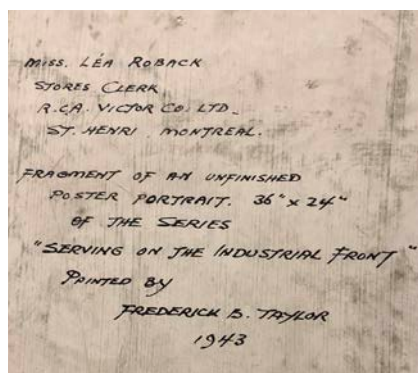 MISS. LÉA ROBACK
STORES CLERK
R.C.A. VICTOR CO. LTD.
ST. HENRI, MONTREAL.
FRAGMENT OF AN UNFINISHED
POSTER PORTRAIT. 36" x 24"
OF THE SERIES
"SERVING ON THE INDUSTRIAL FRONT"
PAINTED BY
FREDERICK B. TAYLOR
1943